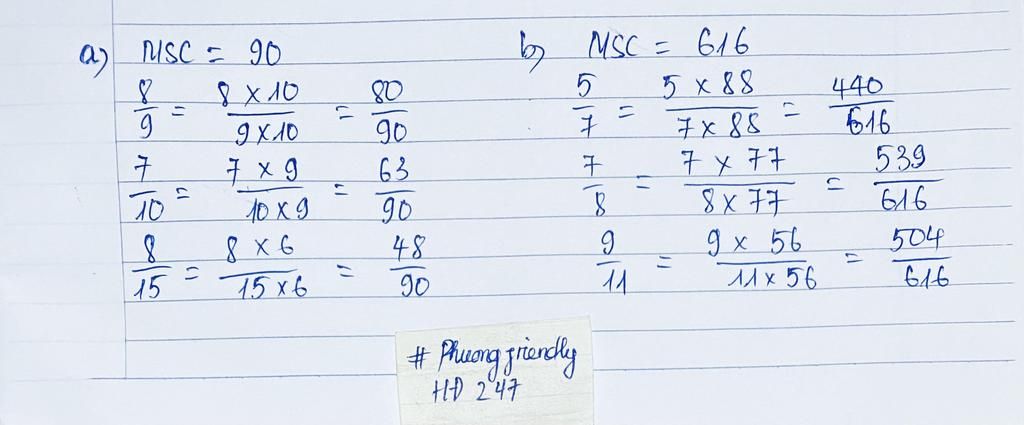 a) MSC = 90
8/9 = 8 x 10/9 x 10 = 80/90
7/10 = 7 x 9/10 x 9 = 63/90
8/15 = 8 x 6/15 x 6 = 48/90
b) MSC = 616
5/7 = 5 x 88/7 x 88 = 440/616
7/8 = 7 x 77/8 x 77 = 539/616
9/11 = 9 x 56/11 x 56 = 504/616
# Phuong friendly
HĐ 247